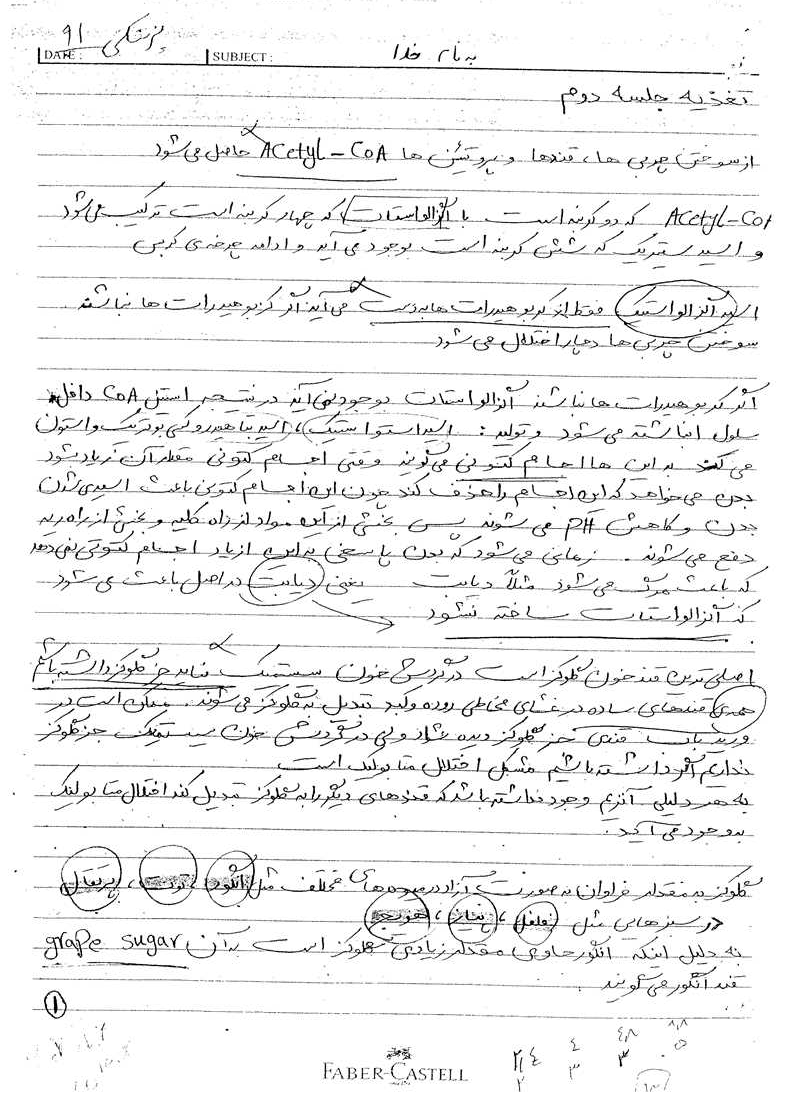 پزشکی ۹۱
DATE: SUBJECT: به نام خدا
تغذیه جلسه دوم
از سوختن چربی ها، قندها و پروتئین ها Acetyl-CoA حاصل می شود
Acetyl-CoA که دو کربنه است با اگزالواستات که چهار کربنه است ترکیب می شود
و اسید سیتریک که شش کربنه است بوجود می آید و ادامه چرخه ی کربس
اسید اگزالواستیک فقط از کربوهیدرات ها بدست می آید اگر کربوهیدرات ها نباشند
سوختن چربی ها دچار اختلال می شود
اگر کربوهیدرات ها نباشند اگزالواستات بوجود نمی آید در نتیجه استیل CoA داخل
سلول انباشته می شود و تولید: اسید استواستیک، اسید بتا هیدروکسی بوتریک و استون
می کند به این ها اجسام کتونی می گویند وقتی اجسام کتونی مقدارآن زیاد بشود
بدن می خواهد که این اجسام را حذف کند چون این اجسام کتونی باعث اسیدی شدن
بدن و کاهش PH می شوند پس بخشی از این مواد از راه کلیه و بخشی از راه ریه
دفع می شوند. زمانی می شود که بدن پاسخی به این ازیاد اجسام کتونی نمی دهد
که باعث مرگ می شود مثلاً دیابت یعنی دیابت در اصل باعث می شود
که اگزالواستات ساخته نشود
اصلی ترین قند خون گلوکز است در گردش خون سیستمیک نباید جز گلوکز داشته باشیم
همه ی قندهای ساده در غشای مخاطی روده و کبد تبدیل به گلوکز می شوند. ممکن است در
ورید باب قندی جز گلوکز دیده شاد ولی در گردش خون سیستمیک جز گلوکز
نداریم اگر داشته باشیم مشکل اختلال متابولیک است
به هر دلیلی آنزیم وجود نداشته باشد که قندهای دیگر را به گلوکز تبدیل کند اختلال متابولیک
بوجود می آید.
گلوکز به مقدار فراوان به صورت آزاد در میوه های مختلف مثل انگور، توت، پرتقال
در سبزهایی مثل فلفل، پیاز، هویج
به دلیل اینکه انگور حاوی مقدار زیادی گلوکز است به آن grape sugar
قند انگور می گویند.
①
FABER-CASTELL